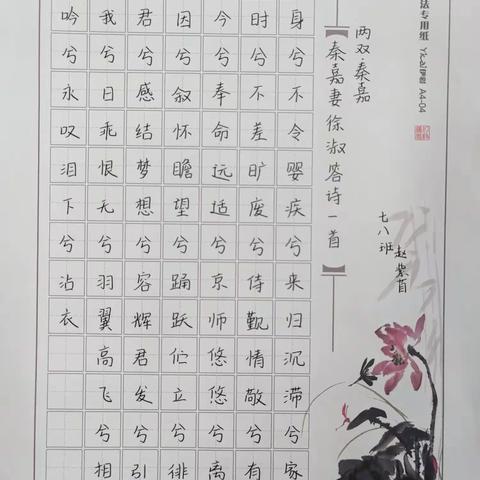 法专用纸 A4-04
两双·秦嘉
【秦嘉妻徐淑答诗一首】
七八班 赵紫
身兮不令婴疾兮来归沉滞兮家
时兮不差旷废兮侍觐情敬兮有
今兮奉命远适兮京师悠悠兮离
因兮叙怀瞻望兮踊跃伫立兮徘
君兮感结梦想兮容辉君发兮引
我兮日乖恨无兮羽翼高飞兮相
吟兮永叹泪下兮沾衣